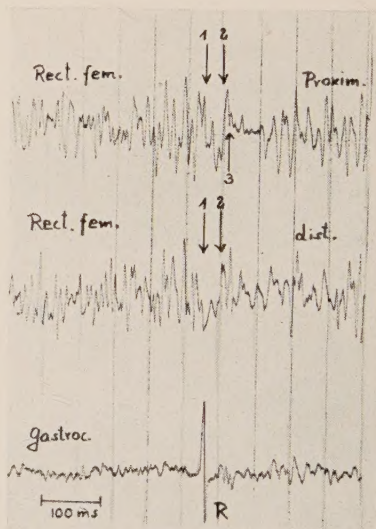 1 2
Rect. fem. Proxim.
3
Rect. fem. 1 2 dist.
gastroc.
100 ms R